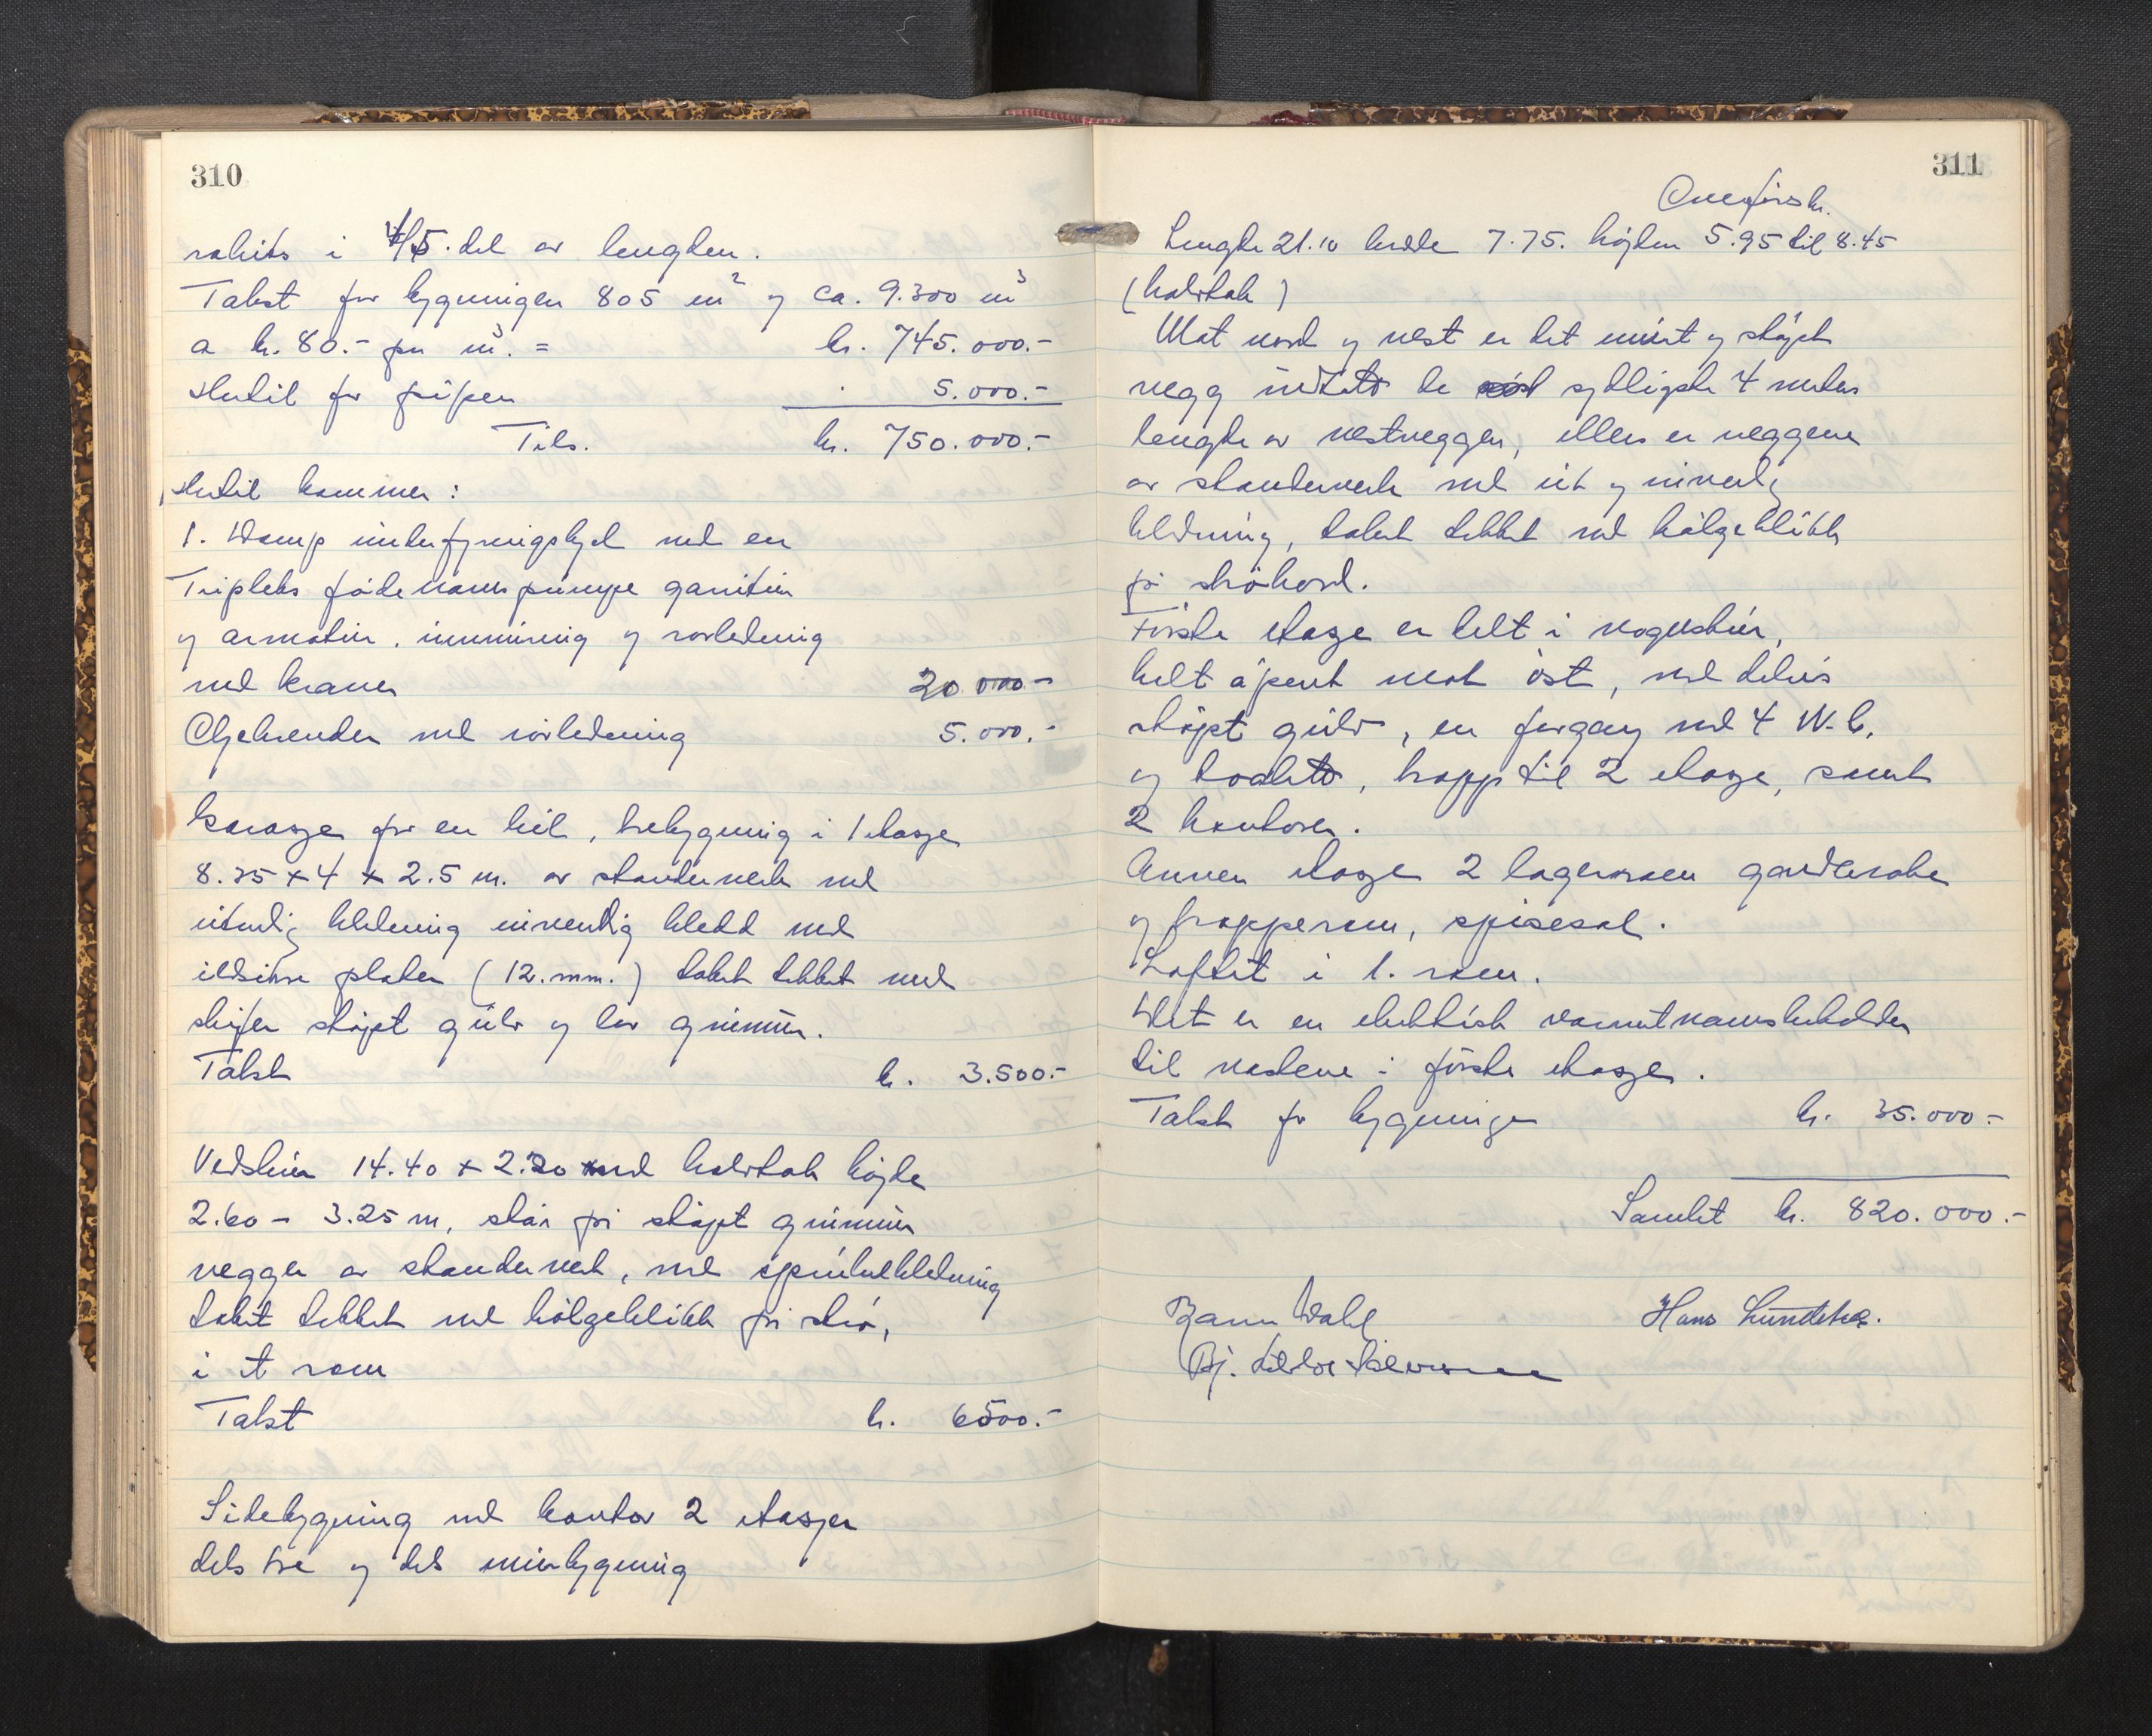 310
rabits i 4/5. del av lengden.
Takst for bygningen 805 m² og ca. 9.300 m³
a kr. 80.- per m³. = kr. 745.000.-
Hertil for pipen 5.000.-
Tils. kr. 750.000.-
Hertil kommer:
1. Damp underfyringskjel med en
Tripleks födevannspumpe garnitur
og armatur. innmuring og rörledning
med kraner 20.000.-
Oljebrender med rörledning 5.000.-
Garasje for en bil, trebygning i 1 etasje
8.75 x 4 x 2.5 m. av standerverk med
utvendig kledning innvendig kledd med
ildsikre plater (12. mm.) taket tekket med
skifer stöpt gulv og lav grunnmur.
Takst kr. 3.500.-
Vedskur 14.40 x 2.20 med halvtak höyde
2.60 - 3.25 m, står på stöpt grunnmur
vegger av standerverk, med sprinkelkledning
taket tekket med bölgeblikk på strö,
i et rom
Takst kr. 6500.-
Sidebygning med kontor 2 etasjer
dels tre og dels murbygning
311
Overförsk.
Lengde 21.10 bredde 7.75. höyden 5.95 til 8.45
(halvtak)
Mot nord og vest er det muret og stöpt
vegg untatt de sydligste 4 meters
lengde av vestveggen, ellers er veggene
av standerverk med ut og innvendig
kledning, taket tekket med bölgeblikk
på ströbord.
Förste etasje er helt i vognskur,
helt åpent mot öst, med delvis
stöpt gulv, en forgang med 4 W.C.
og toalett, trapp til 2 etasje, samt
2 kontorer.
Annen etasje 2 lagerrom garderobe
og trapperom, spisesal.
Loftet i 1. rom.
Det er en elektrisk varmtvannsbeholder
til vaskene i förste etasje.
Takst for bygningen kr. 35.000.-
Samlet kr. 820.000.-
Dahl Hans
Bj.